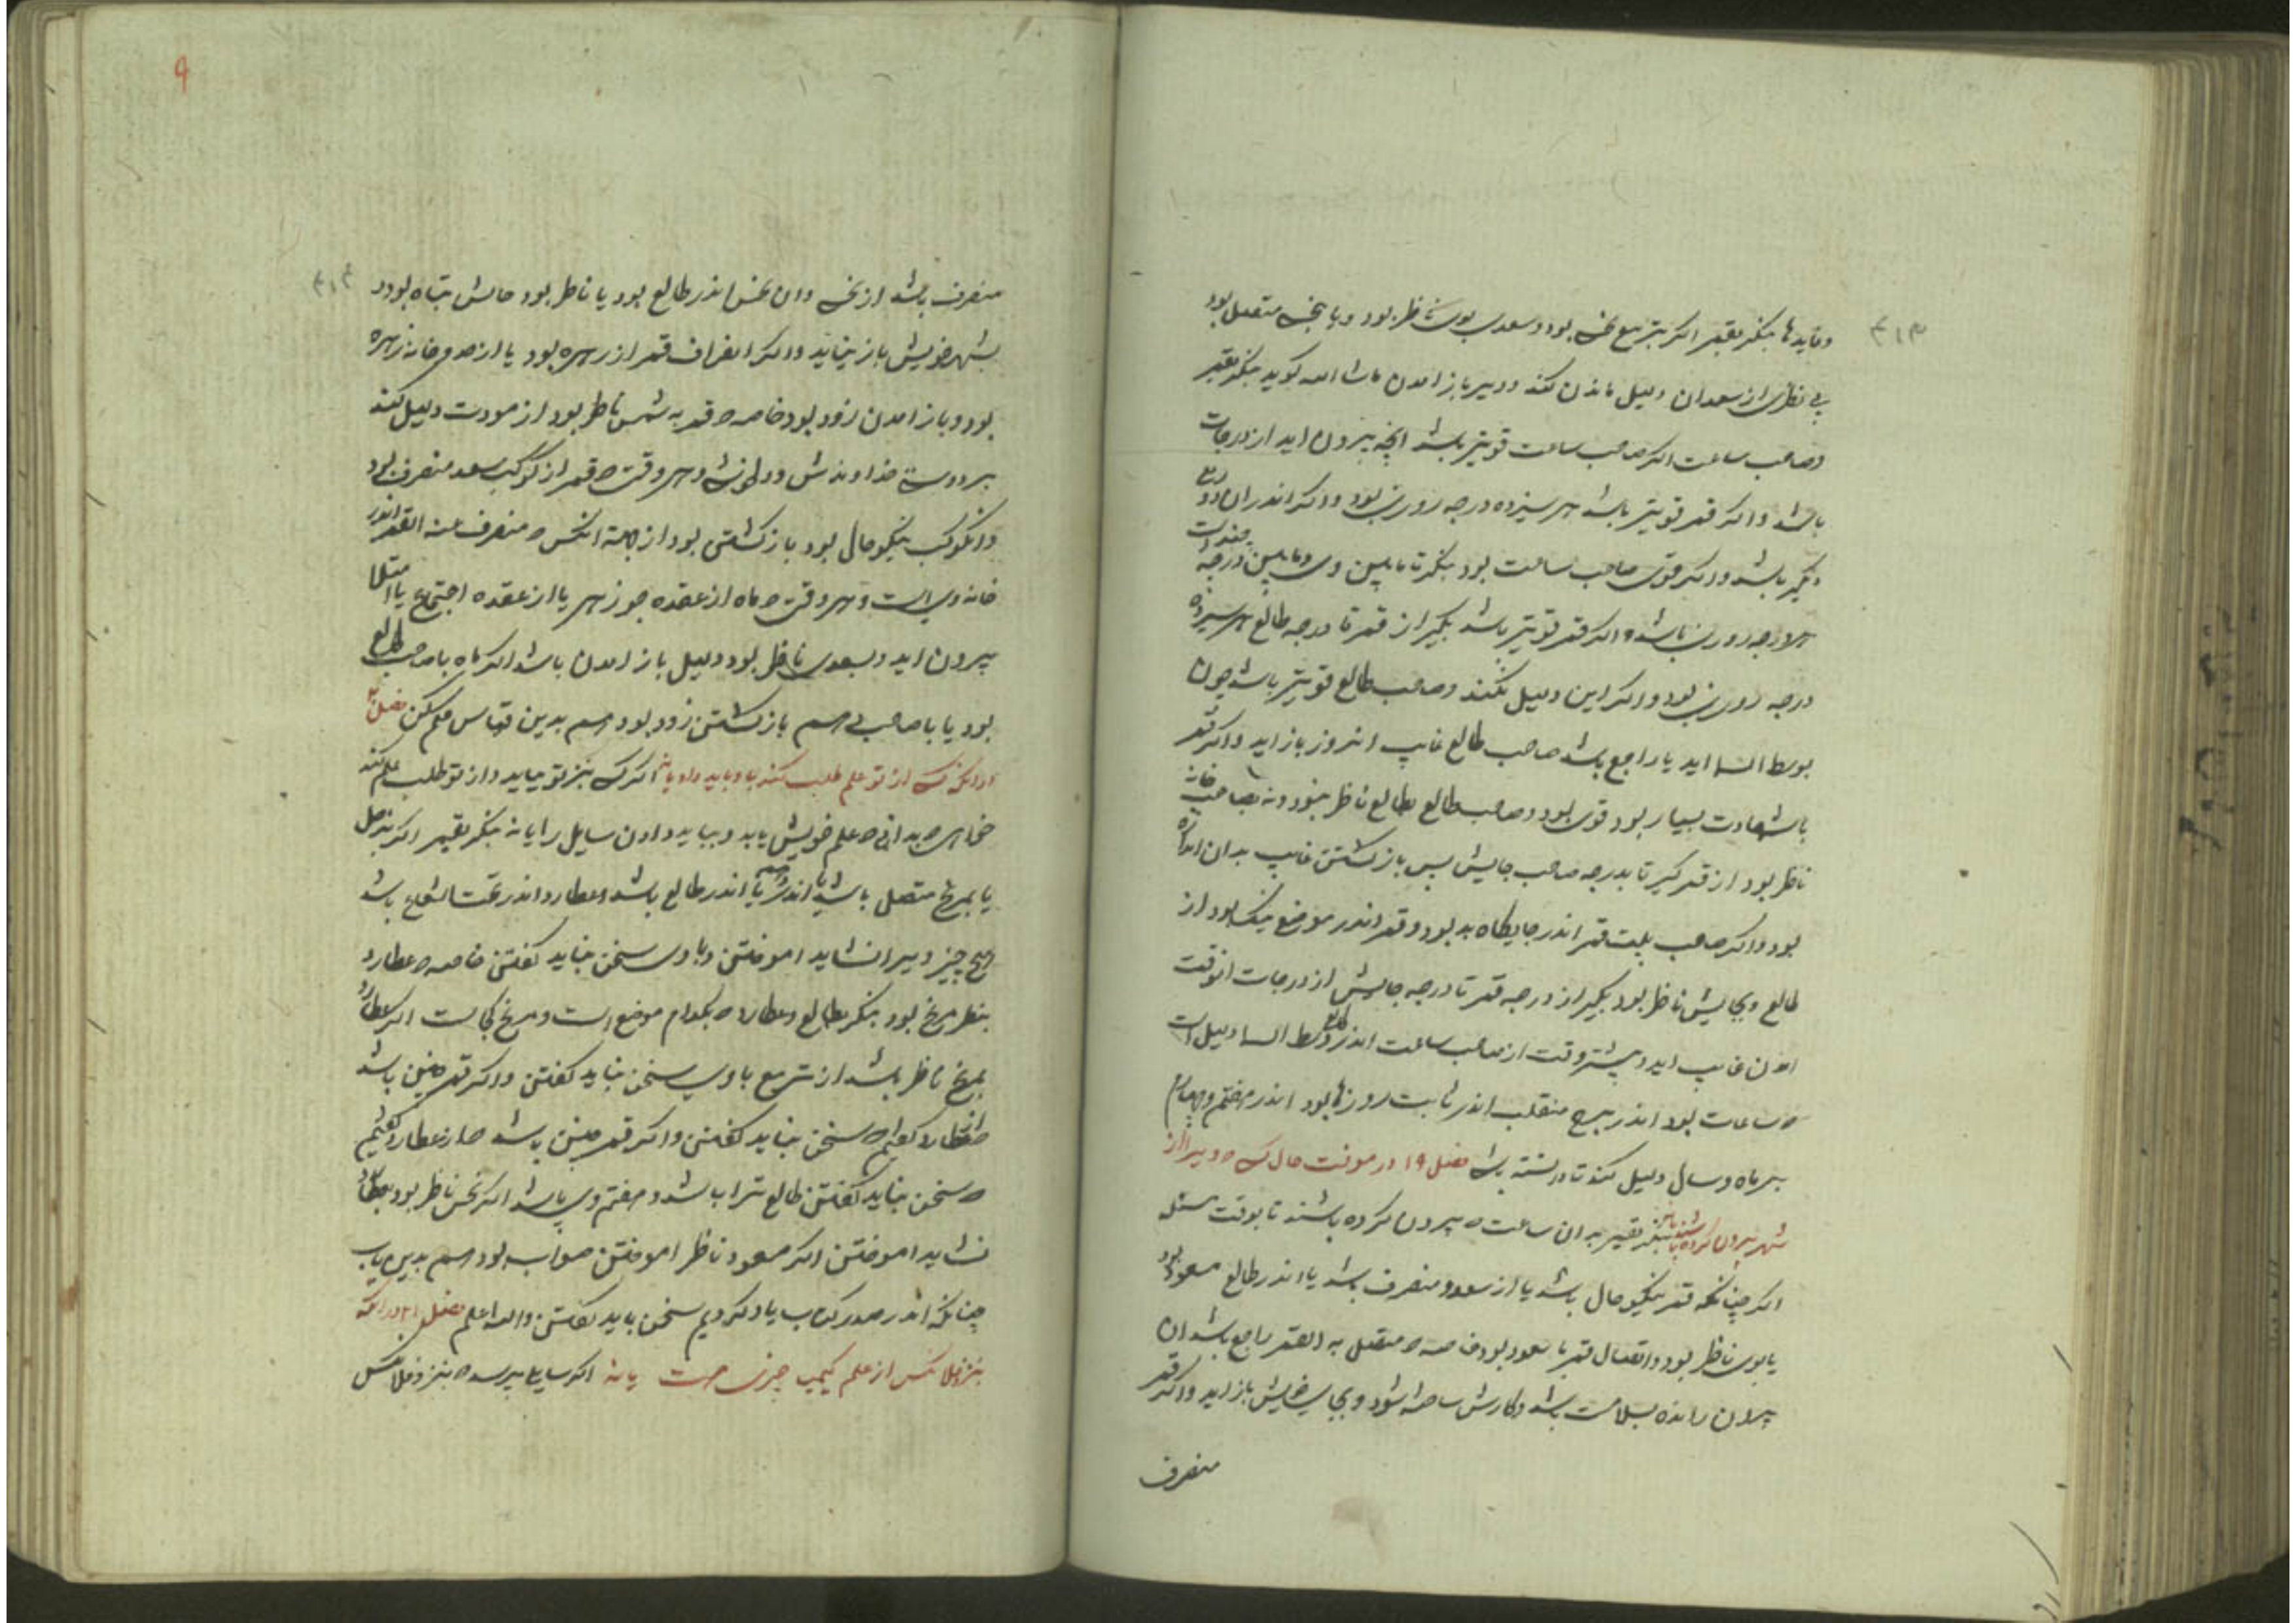 ۳۱۳
وتایدها بنکر بقمر اکر بتربیع نحس بود وسعدی بوی ناظر بود ویا بنحس متصل بود
بی نظری از سعدان دلیل ماندن کند ودیر باز امدن ماشا الله کوید بنکر بقمر
وصاحب ساعت اکر صاحب ساعت قویتر باشد انچه بیرون اید از درجات
باشد واکر قمر قویتر باشد هر سیزده درجه روزی بود واکر اندران
دیکر باشد واکر قوی صاحب ساعت بود بنکر تا مابین وی ومابین درجه چندست
درجه روزی باشد واکر قمر قویتر باشد بکیر از قمر تا درجه طالع هر سیزده
درجه روزی بود واکر این دلیل نکنند وصاحب طالع قویتر باشد چون
بوسط السما اید یا راجع باشد صاحب طالع غایب انروز باز اید واکر قمر
باشهادت بسیار بود قوی بود وصاحب طالع بطالع ناظر نبود ونه بصاحب خانه
ناظر بود از قمر کیر تا بدرجه صاحب جایش پس باز کشتن غایب بدان اندازه
بود واکر صاحب بیت قمر اندر جایکاه بد بود وقمر اندر موضع نیک بود از
طالع وبجایش ناظر بود بکیر از درجه قمر تا درجه جایش از درجات انوقت
امدن غایب اید وپیشتر وقت از صاحب ساعت اندر طالع ووسط السما دلیل است
ه ساعات بود اندر برج منقلب اندر ثابت روزها بود اندر هفتم وچهارم
بر ماه وسال دلیل کند تا دانسته باشی فصل ۱۹ در معرفت حال کسی ه ویرا از
شهر بیرون کرده باشند بنکر بقمر بدان ساعت ه بیرون کرده باشند تا بوقت مسئله
اکر چنانکه قمر نیکو حال باشد یا از سعود منصرف باشد یا اندر طالع مسعود بود
یا بوی ناظر بود واتصال قمر با سعود بود خاصه ه متصل به القمر راجع باشد ان
بیرون رانده بسلامت باشد وکارش ساخته شود وبجای خویش باز اید واکر قمر
منصرف
۹
۳۱۴
منصرف باشد از نحس وان نحس اندر طالع بود یا ناظر بود حالش تباه بود و
بشهر خویش باز نیاید واکر انصراف قمر از زهره بود یا از هردو خانه زهره
بود وباز امدن زود بود خاصه ه قمر به شمس ناظر بود از مودت دلیل کند
بر دوستی خداوندش ودلخوشی وهر وقت ه قمر از کوکب سعد منصرف بود
وانکوکب نیکو حال بود باز کشتن بود از جهة انکس ه منصرف عنه القمر اندر
خانه وی است وهر وقت ه ماه از عقده جوزهر یا از عقده اجتماع یا امتلا
بیرون اید وبسعدی ناظر بود دلیل باز امدن باشد اکر ماه با صاحب طالع
بود یا با صاحب بی هم باز کشتن زود بود هم بدین قیاس حکم کن فصل ۲۰
اندر انکه کسی از تو علم طلب کند باو باید داد یا نه اکر کسی بنزد تو میاید واز تو طلب علم کند
خواهی ه بدانی ه علم خویش یابد وبباید دادن سایل را یا نه بنکر بقمر اکر بزحل
یا بمریخ متصل باشد یا اندر وسم یا اندر طالع باشد وعطارد اندر تحت الشعاع باشد
هیچ چیز ویرا نشاید اموختن وباوی سخن نباید کفتن خاصه ه عطارد
بنظر مریخ بود بنکر بطالع وعطارد ه بکدام موضع است ومریخ کجاست اکر عطارد
بمریخ ناظر باشد از تربیع باوی سخن نباید کفتن واکر قمر همچنین باشد
ه از عطارد کفتیم ه سخن نباید کفتن واکر قمر همچنین باشد ه از عطارد کفتیم
ه سخن نباید کفتن طالع تراب باشد وهفتم وی باشد اکر نحس ناظر بود بعطارد
نشاید اموختن اکر مسعود ناظر اموختن صواب بود هم بدین باب
چنانکه اندر صدر کتاب یاد کردیم سخن باید کفتن والله اعلم فصل ۲۱ در انکه
بنزد فلانکس از علم کیمیا چیزی هست یا نه اکر سایلی پرسد ه بنزد فلانکس